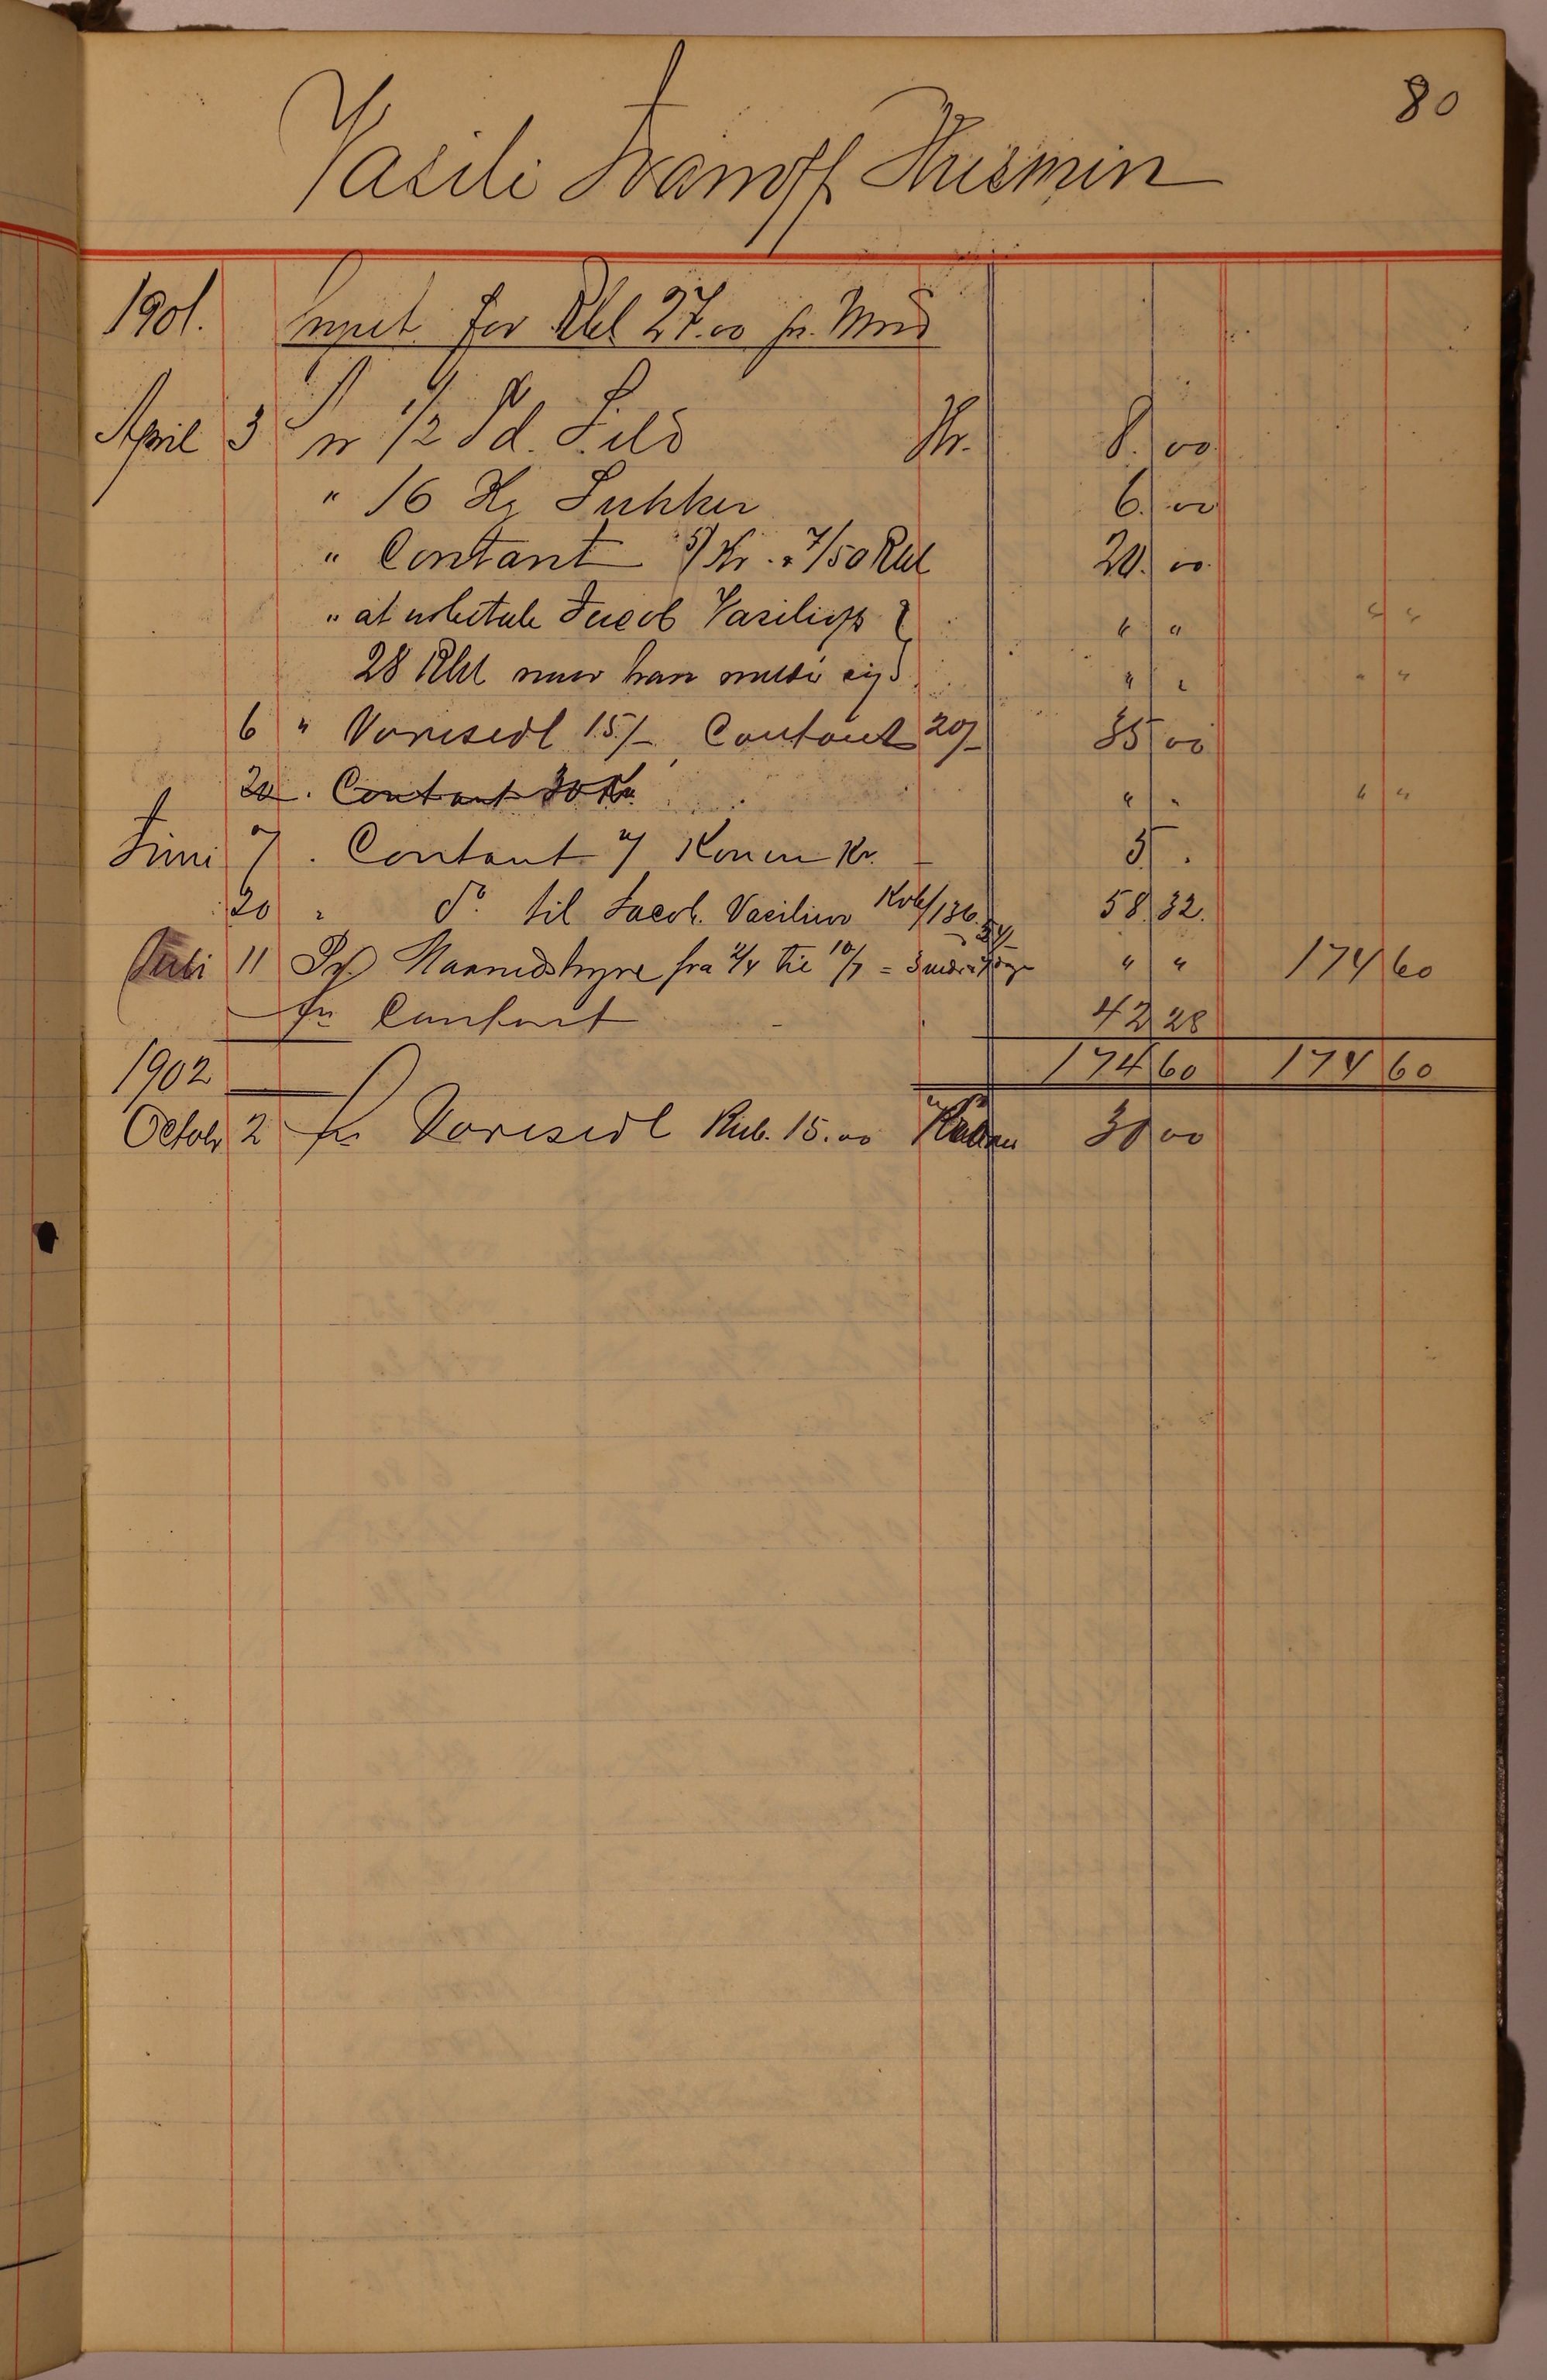 80
Vasili Ivanoff Kusmin
1901. for Rbl 27.00 pr. Mnd
April 3 1/2 Td. Sild Kr. 8.00
" 16 Kg Sukker 6.00
" Contant Kr. 7/50 Rbl 20.00
" at udbetale Jacob Vasilioff " " " "
28 Rbl naar han " " " "
6 " Varesedl 15/- Contant 20/- 35 00
20 . Contant 30 Kr. " " " "
Juni 7 . Contant Konen Kr. 5 .
20 " do til Jacob Vasiliev 58.32.
Juli 11 Pr. Maanedshyre fra 2/4 til 10/7 = " " 174 60
pr Contant 42 28
1902 174 60 174 60
Octob 2 pr Varesedl Rub. 15.00 30 00